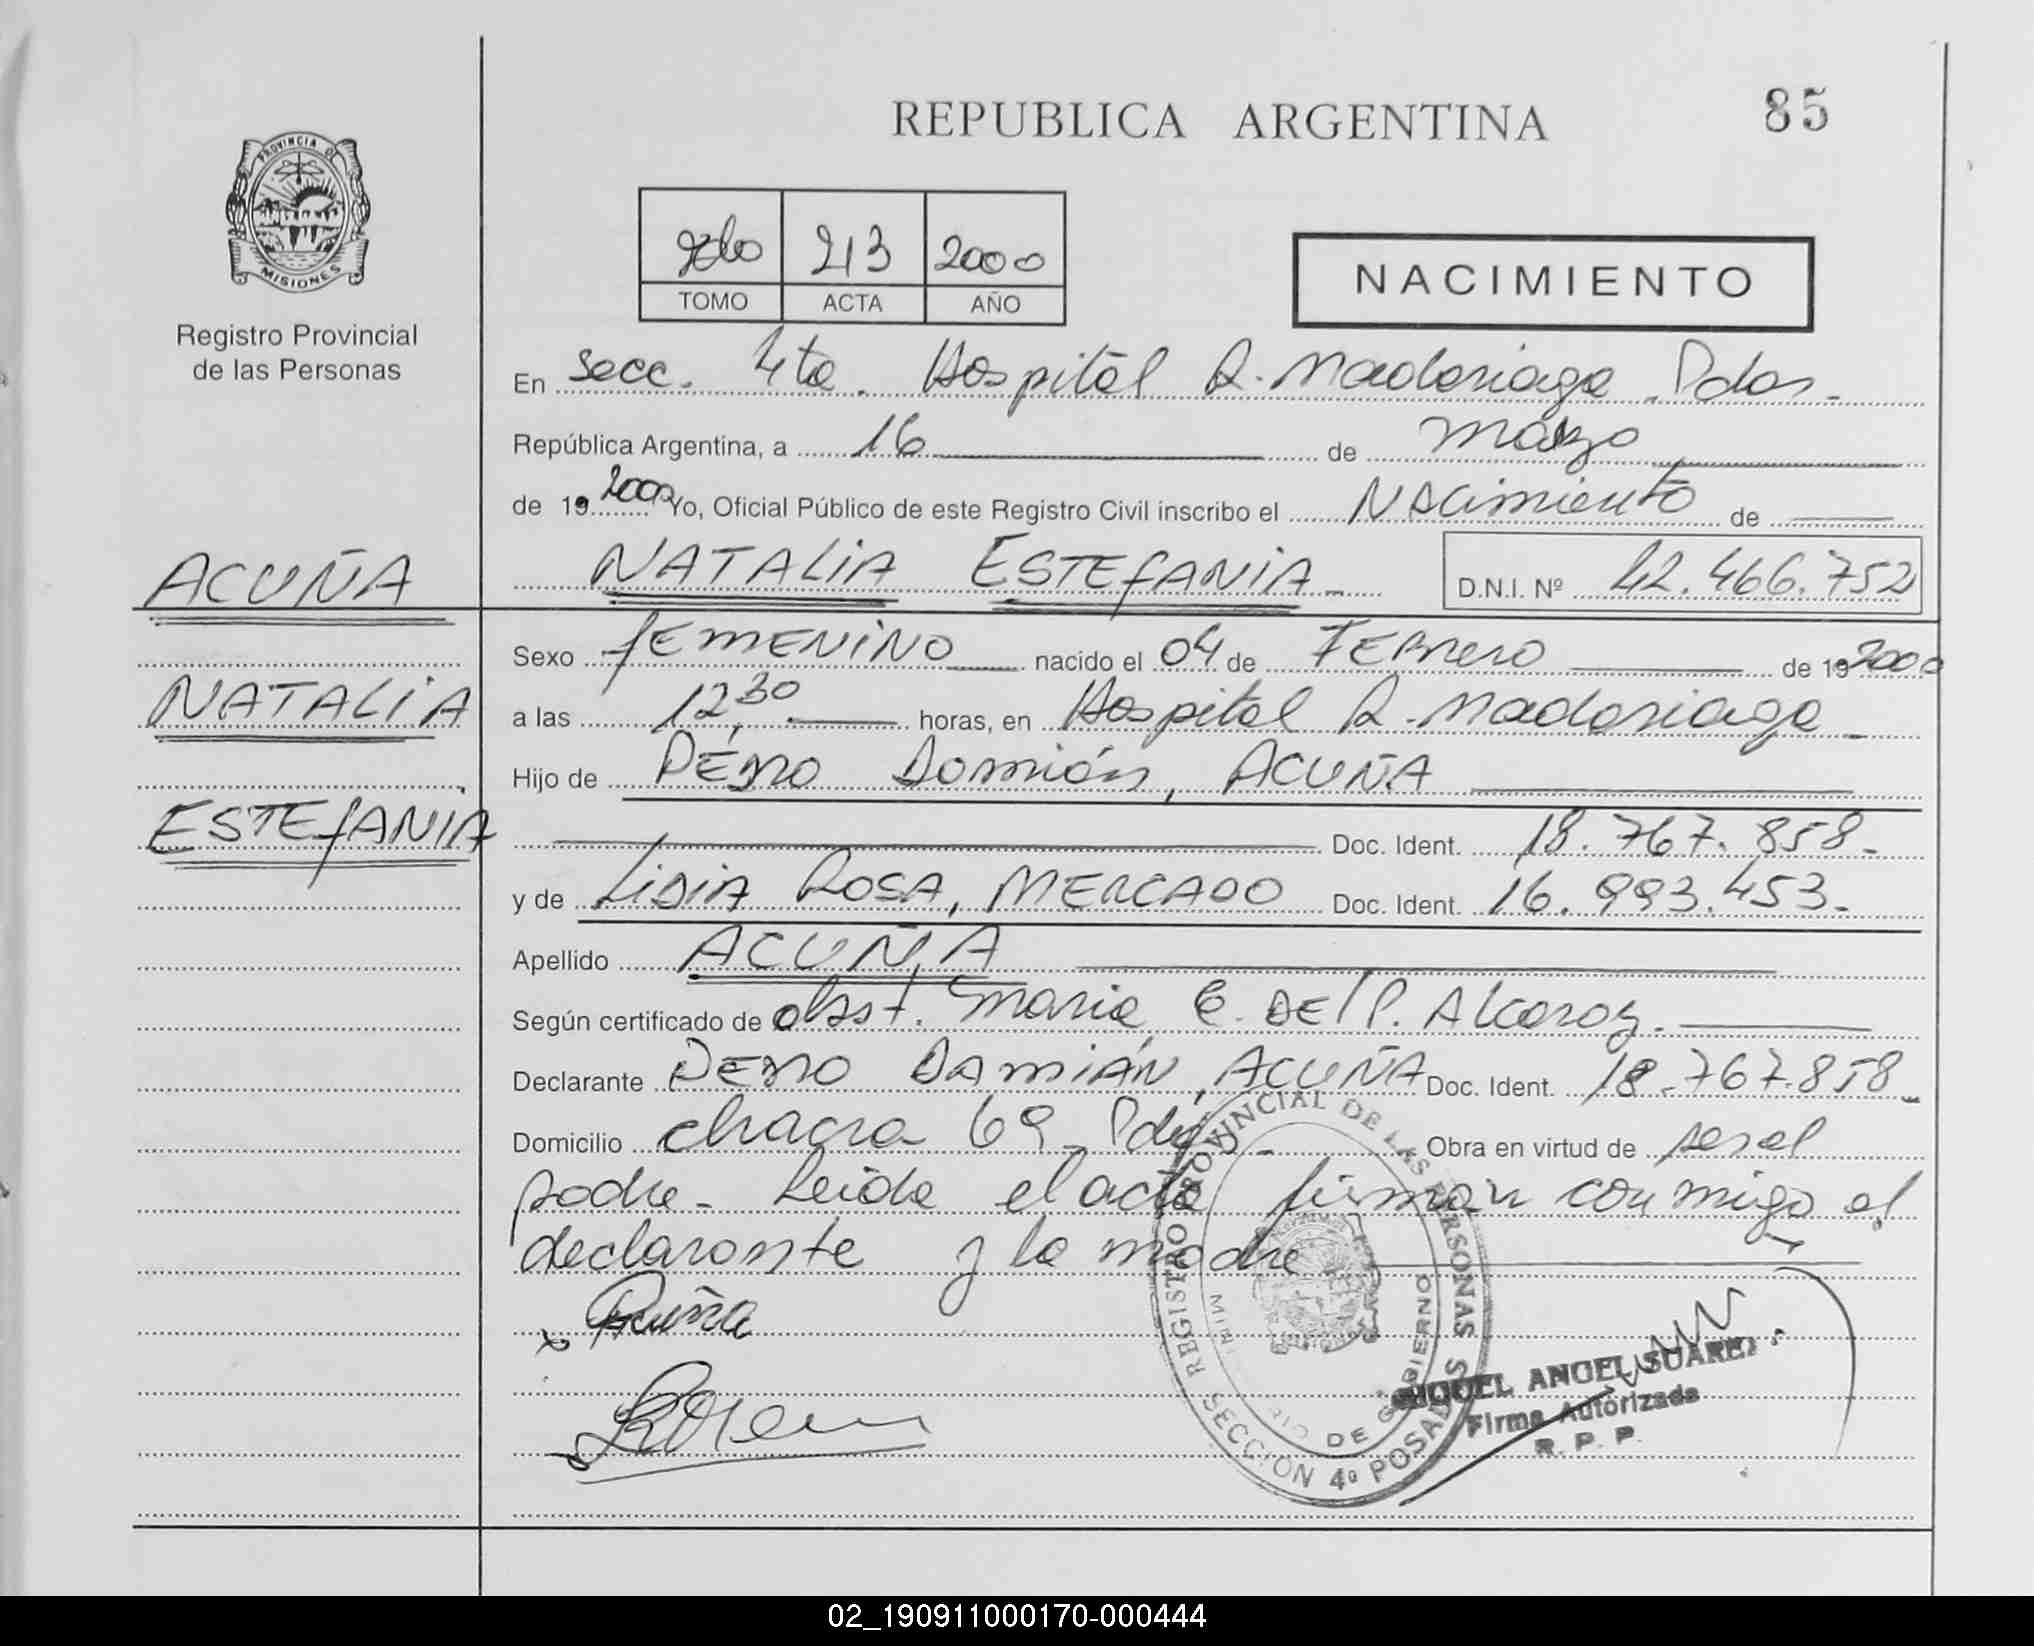 REPUBLICA ARGENTINA
85
PROVINCIA DE
MISIONES
Registro Provincial
de las Personas
213 2000
TOMO ACTA AÑO
NACIMIENTO
En secc. 4ta. Hospital R. Madariaga. Pdas.
República Argentina, a 16 de Marzo
de 19 2000 Yo, Oficial Público de este Registro Civil inscribo el Nacimiento de
ACUÑA
NATALIA ESTEFANIA D.N.I. Nº 42.466.752
Sexo FEMENINO nacido el 04 de FEBrero de 19 2000
NATALIA
a las 12,30 horas, en Hospital R. Madariaga
Hijo de Damián, ACUÑA
ESTEFANIA
Doc. Ident. 18.767.858-
y de LIDIA ROSA, MERCADO Doc. Ident. 16.993.453-
Apellido ACUÑA
Según certificado de obst. Maria E. DEl P. Alcaraz.
Declarante DAMIÁN, ACUÑA Doc. Ident. 18.767.858-
Domicilio chacra 69 Pdas - Obra en virtud de ser el
padre - Leida el acta firman conmigo el
declarante y la madre
Acuña
REGISTRO PROVINCIAL DE LAS PERSONAS
DE GOBIERNO
SECCION 4ª POSADAS
MIGUEL ANGEL SUAREZ
Firma Autorizada
R. P. P.
02_190911000170-000444